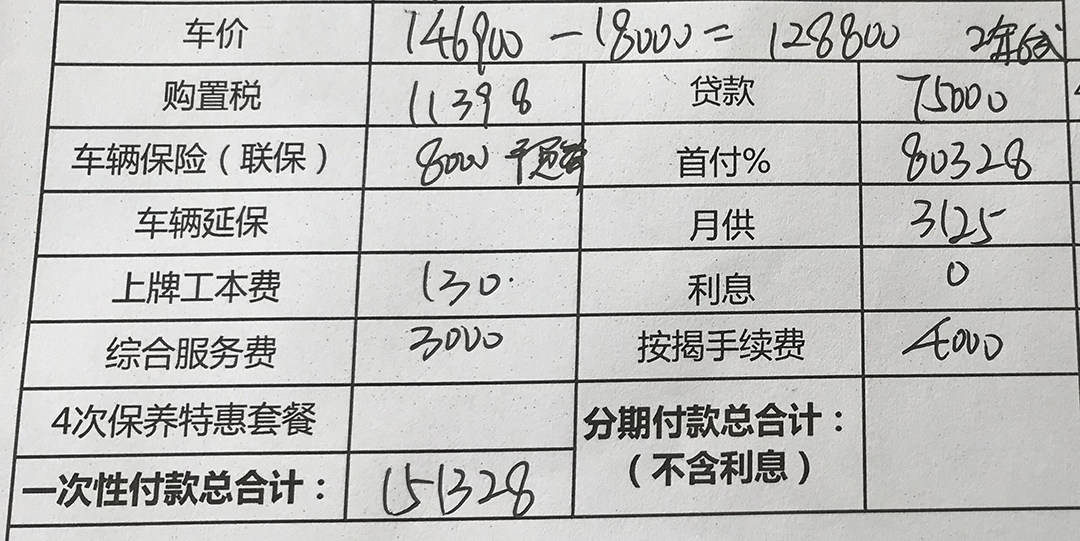 车价 146900 - 18000 = 128800
购置税 11398 贷款 75000
车辆保险（联保） 8000 首付% 80328
车辆延保 月供 3125
上牌工本费 130. 利息 0
综合服务费 3000 按揭手续费 4000
4次保养特惠套餐 分期付款总合计：
（不含利息）
一次性付款总合计： 151328